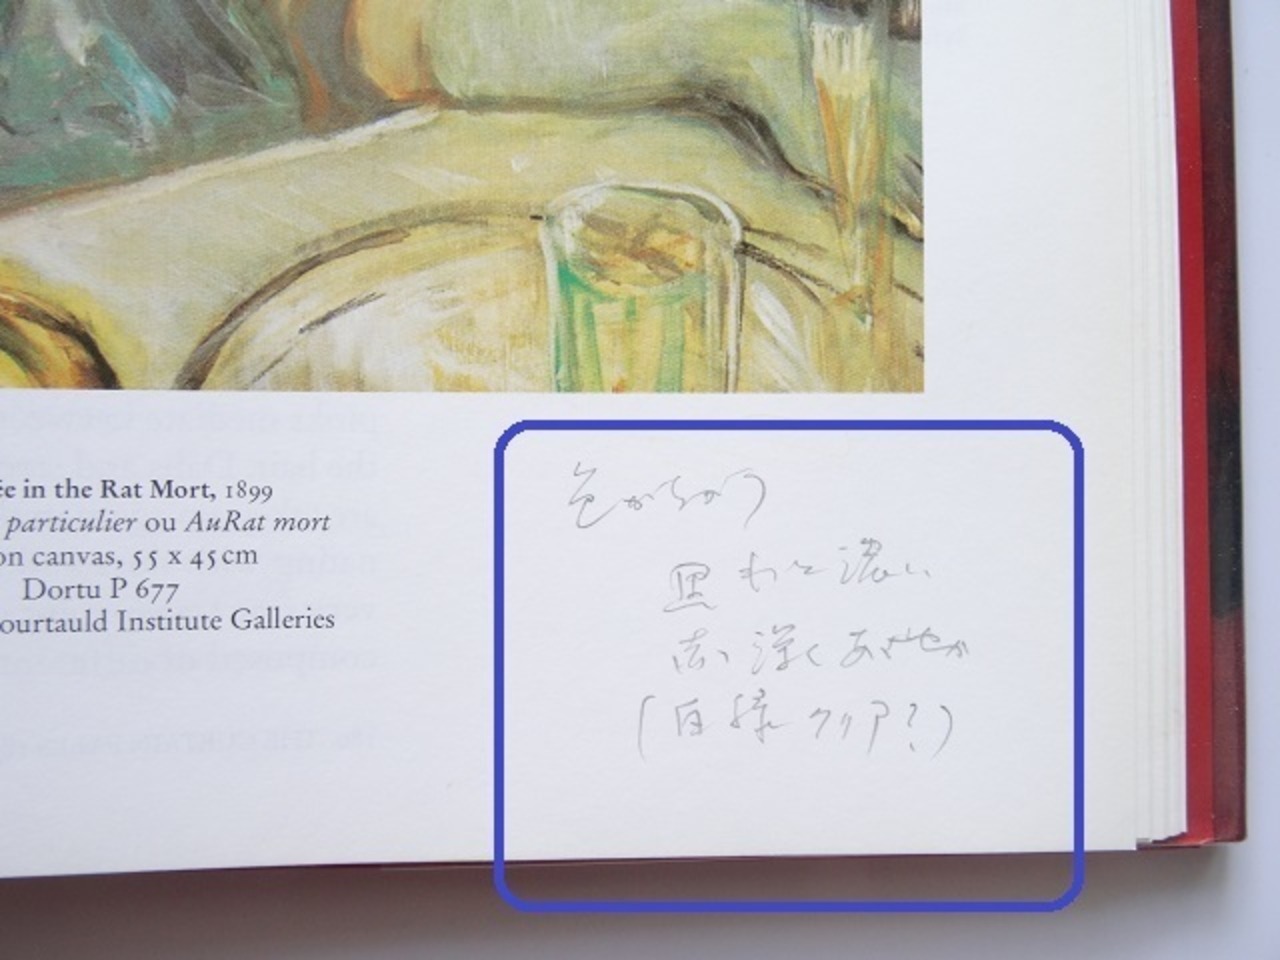 ée in the Rat Mort, 1899
particulier ou AuRat mort
on canvas, 55 x 45 cm
Dortu P 677
ourtauld Institute Galleries
色がちがう
黒もっと濃い
赤い深くあざやか
(白緑クリア?)